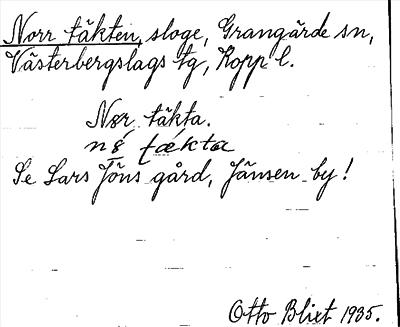 Norr täkten, sloge, Grangärde sn,
Västerbergslags tg, Kopp l.
Nør täkta.
nǿ tækta
Se Lars Jöns gård, Jänsen by!
Otto Blixt 1935.